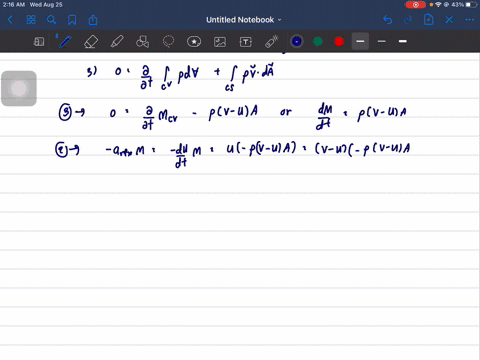 2:16 AM Wed Aug 25
43%
Untitled Notebook
3) 0 = ∂/∂t ∫cv ρd∀ + ∫cs ρv⃗·dA⃗
③ → 0 = ∂/∂t Mcv - ρ(v-u)A or dM/dt = ρ(v-u)A
② → -arfx M = -du/dt M = u(-ρ(v-u)A) = (v-u)(-ρ(v-u)A